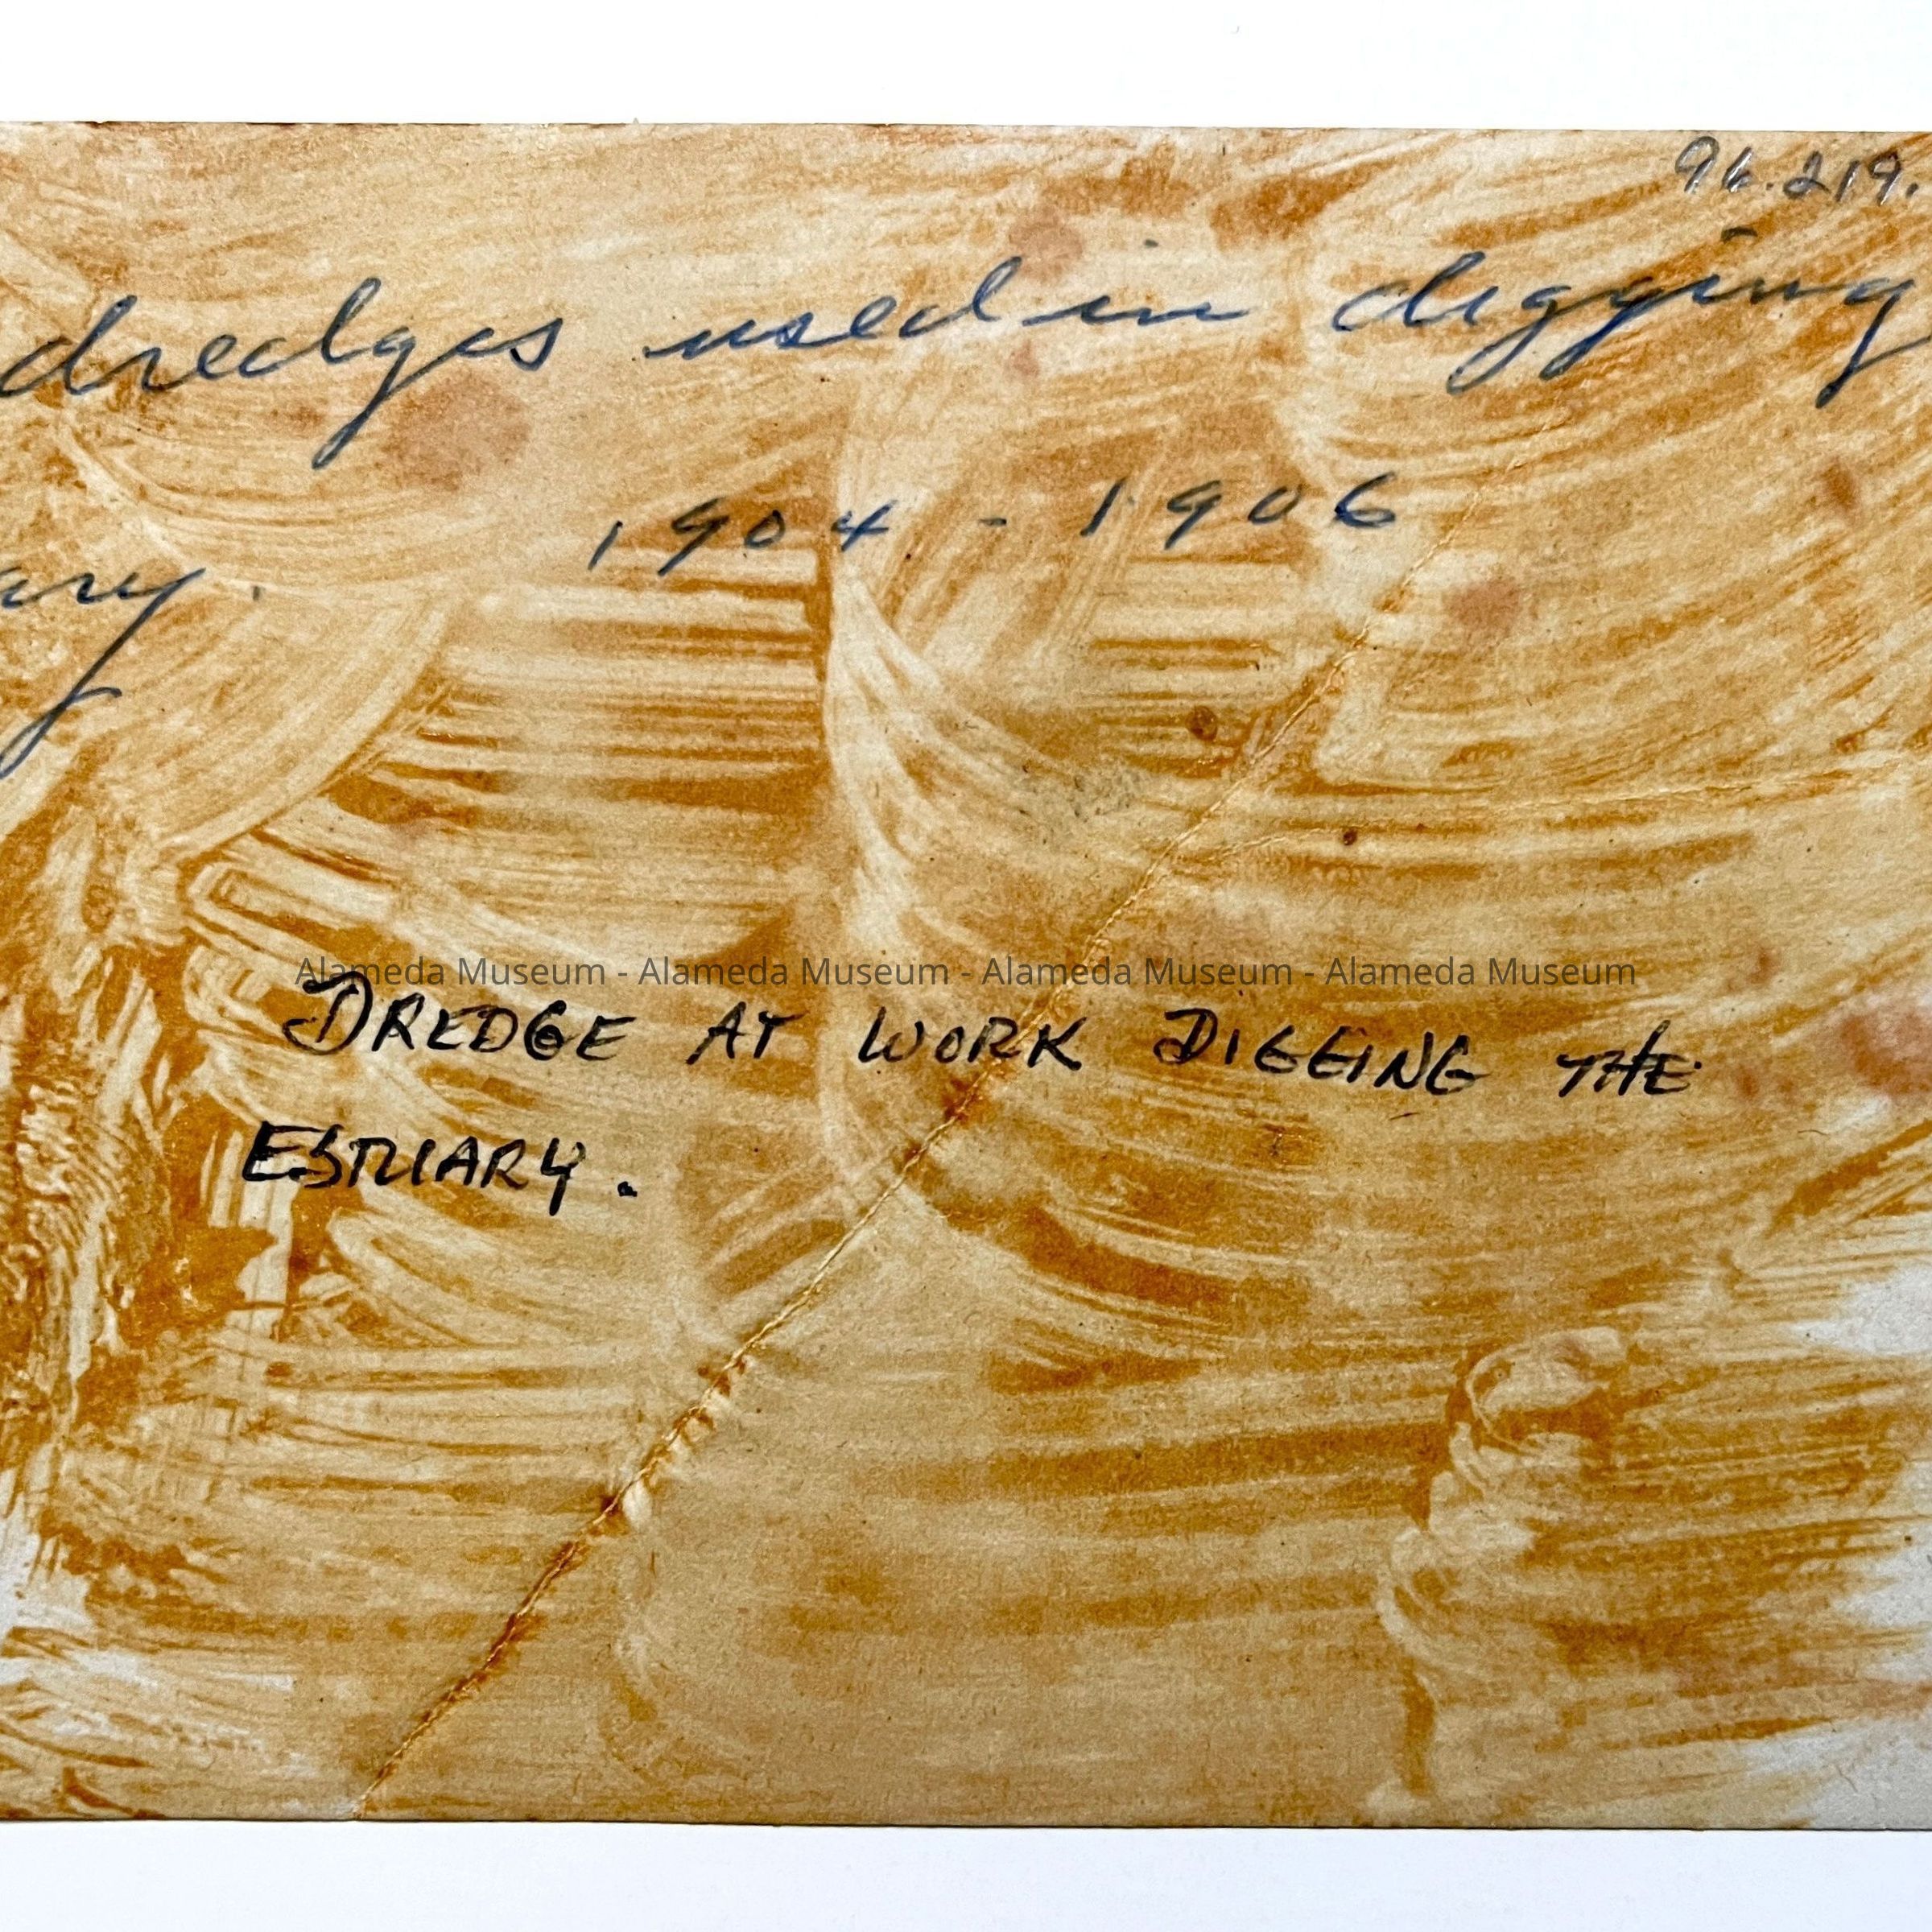 96.219.
dredges used in digging
ary. 1904 - 1906
Alameda Museum - Alameda Museum - Alameda Museum - Alameda Museum
DREDGE AT WORK DIGGING THE
ESTUARY.